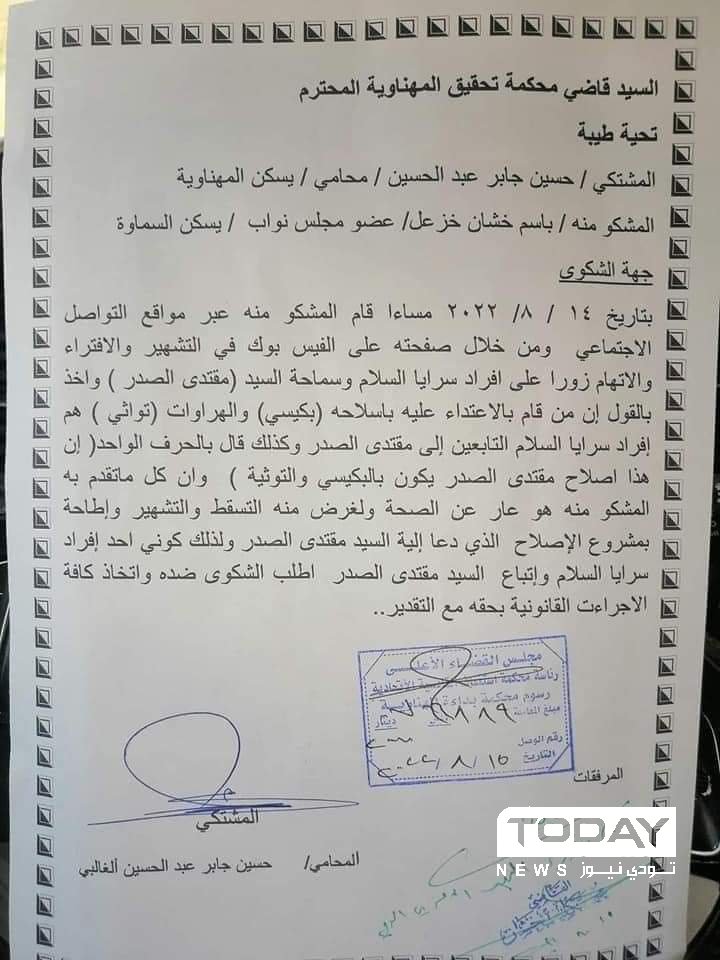 السيد قاضي محكمة تحقيق المهناوية المحترم
تحية طيبة
المشتكي / حسين جابر عبد الحسين / محامي / يسكن المهناوية
المشكو منه / باسم خشان خزعل/ عضو مجلس نواب / يسكن السماوة
جهة الشكوى
بتاريخ ١٤ / ٨/ ٢٠٢٢ مساءا قام المشكو منه عبر مواقع التواصل
الاجتماعي ومن خلال صفحته على الفيس بوك في التشهير والافتراء
والاتهام زورا على افراد سرايا السلام وسماحة السيد (مقتدى الصدر ) واخذ
بالقول إن من قام بالاعتداء عليه باسلاحه (بكيسي) والهراوات (تواثي ) هم
إفراد سرايا السلام التابعين إلى مقتدى الصدر وكذلك قال بالحرف الواحد( إن
هذا اصلاح مقتدى الصدر يكون بالبكيسي والتوثية ) وان كل ماتقدم به
المشكو منه هو عار عن الصحة ولغرض منه التسقط والتشهير وإطاحة
بمشروع الإصلاح الذي دعا إلية السيد مقتدى الصدر ولذلك كوني احد إفراد
سرايا السلام وإتباع السيد مقتدى الصدر اطلب الشكوى ضده واتخاذ كافة
الاجراءت القانونية بحقه مع التقدير..
مجلس القضاء الأعلى
رئاسة محكمة استئناف الاتحادية
رسوم محكمة بداءة المهناوية
مبلغ دينار
رقم الوصل
التاريخ ١٥ / ٨ / ٢٠٢٢
المرفقات
المشتكي
المحامي/ حسين جابر عبد الحسين الغالبي
TODAY
NEWS تـودي نيـوز
القاضي